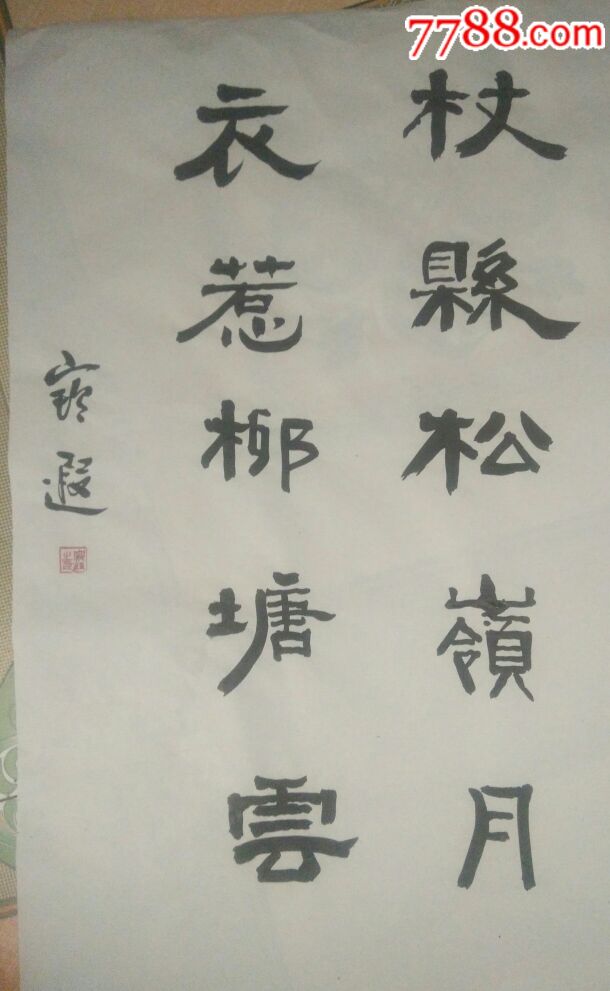 7788.com
杖縣松嶺月
衣惹柳塘雲
寳遐